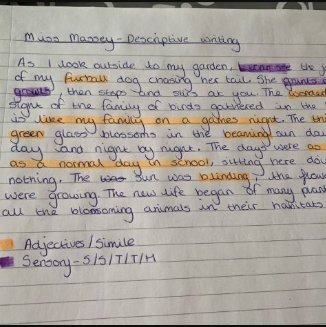 Muss Massey - Descriptive writing
As I look outside to my garden, I can see the
of my furball dog chasing her tail. She grunts
grunts, then stops and stirs at you. The
sight of the family of birds gathered in the
is like my family on a games night. The
green glass blossoms in the beaming sun
day and night by night. The days were as
as a normal day in school, sitting here
nothing. The sun was blinding, the
were growing. The new life began of many
all the blossoming animals in their habitats
Adjectives/Simile
Sensory - S/S/T/T/H